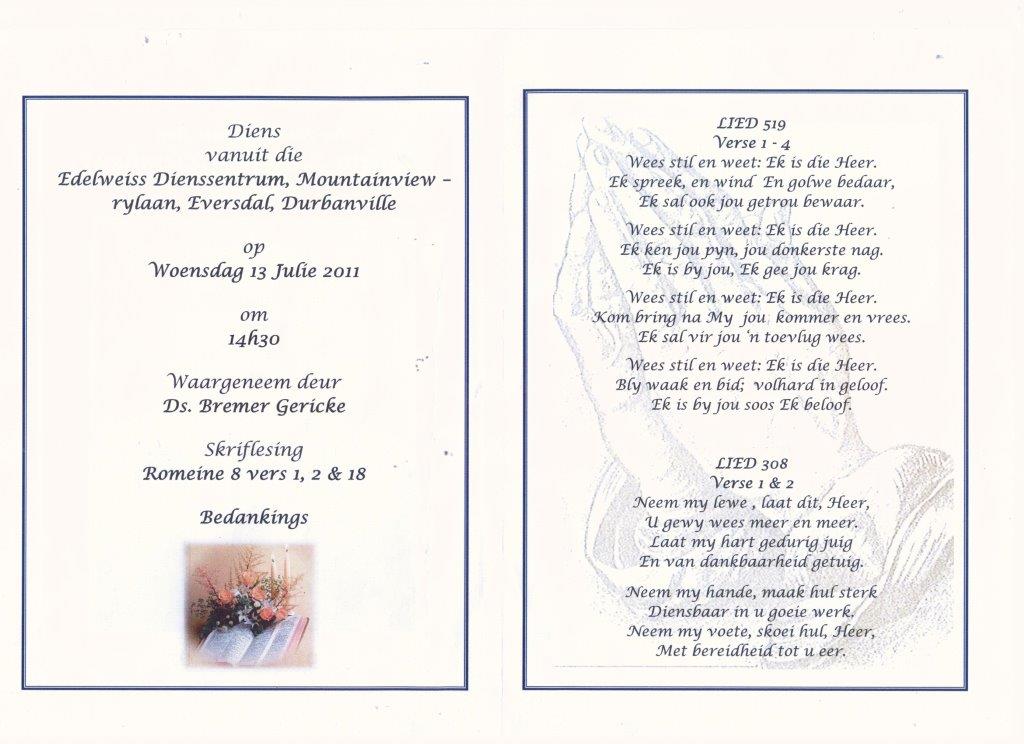 Diens
vanuit die
Edelweiss Dienssentrum, Mountainview –
rylaan, Eversdal, Durbanville
op
Woensdag 13 Julie 2011
om
14h30
Waargeneem deur
Ds. Bremer Gericke
Skriflesing
Romeine 8 vers 1, 2 & 18
Bedankings
LIED 519
Verse 1 - 4
Wees stil en weet: Ek is die Heer.
Ek spreek, en wind En golwe bedaar,
Ek sal ook jou getrou bewaar.
Wees stil en weet: Ek is die Heer.
Ek ken jou pyn, jou donkerste nag.
Ek is by jou, Ek gee jou krag.
Wees stil en weet: Ek is die Heer.
Kom bring na My jou kommer en vrees.
Ek sal vir jou ‘n toevlug wees.
Wees stil en weet: Ek is die Heer.
Bly waak en bid; volhard in geloof.
Ek is by jou soos Ek beloof.
LIED 308
Verse 1 & 2
Neem my lewe , laat dit, Heer,
U gewy wees meer en meer.
Laat my hart gedurig juig
En van dankbaarheid getuig.
Neem my hande, maak hul sterk
Diensbaar in u goeie werk.
Neem my voete, skoei hul, Heer,
Met bereidheid tot u eer.